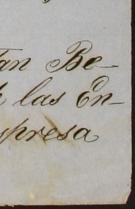 tan Be-
las En-
mpresa